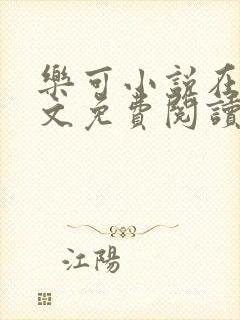 樂可小說在
文免費閱讀
江陽